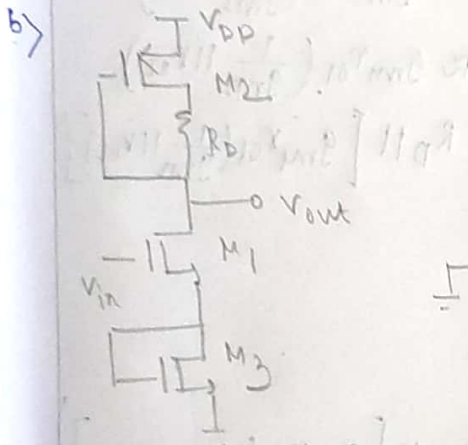 b)
VDD
M2
RD
Vout
M1
Vin
M3